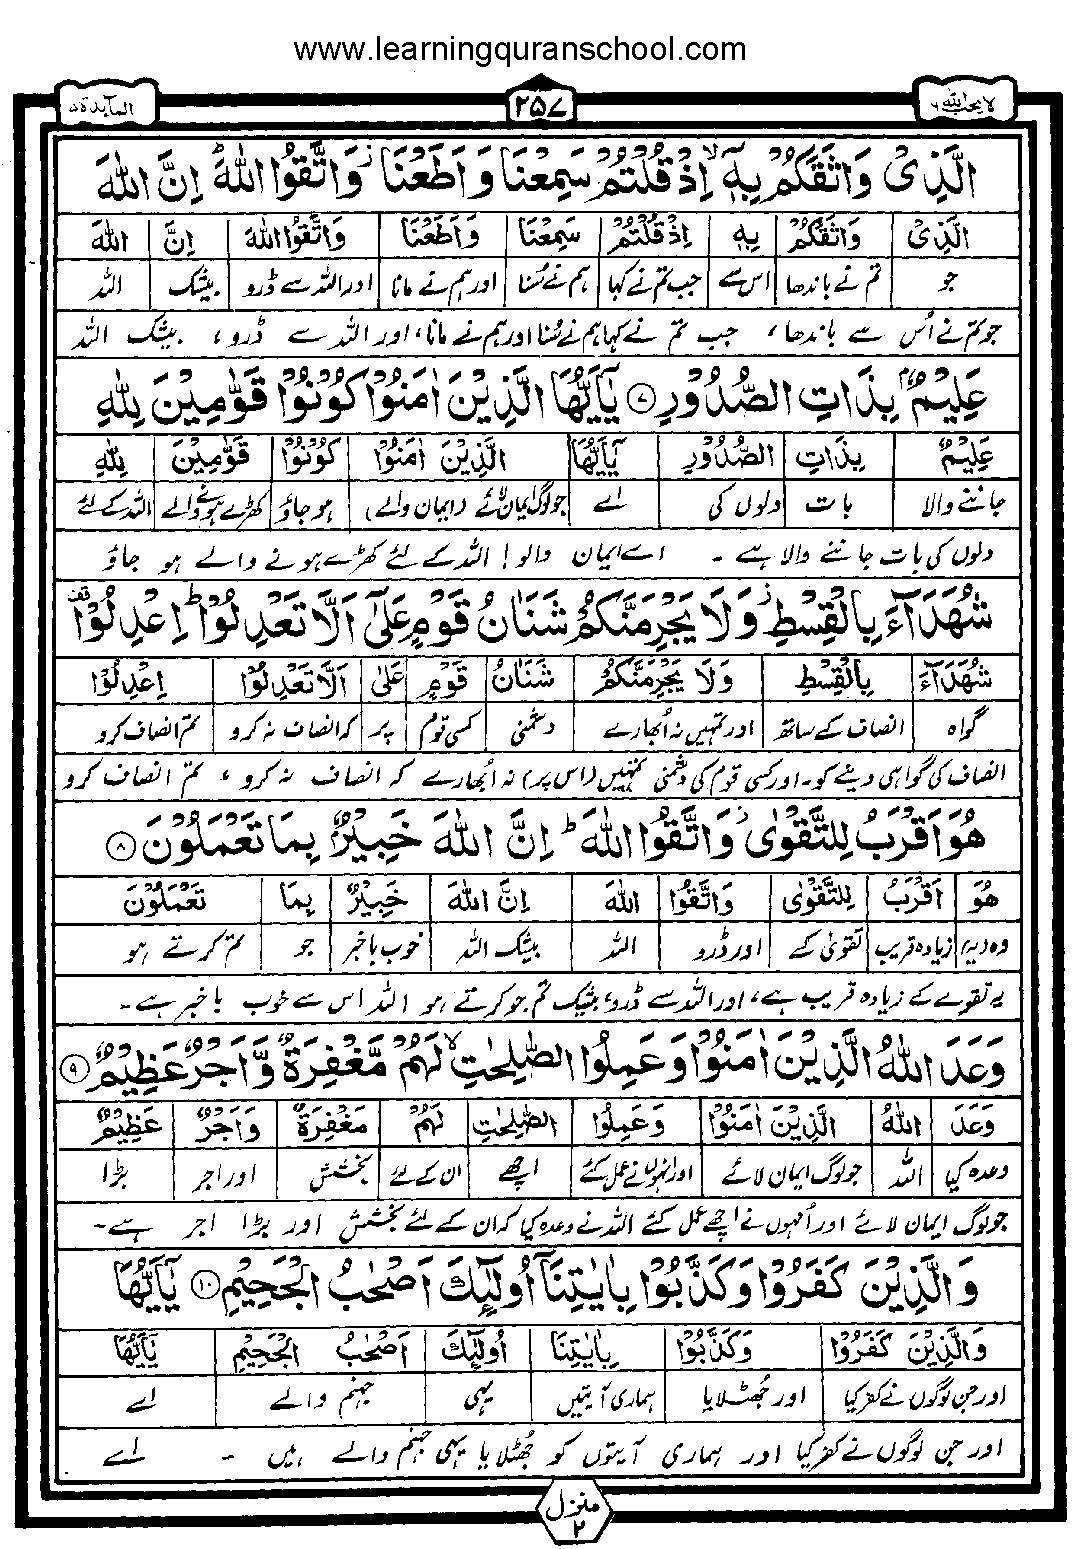 www.learningquranschool.com
لا يحب الله ۶
۲۵۷
المآبدة ۵
الَّذِىْ وَاثَقَكُمْ بِهٖۤ ۙ اِذْ قُلْتُمْ سَمِعْنَا وَ اَطَعْنَا ۫ وَاتَّقُوا اللّٰهَ ؕ اِنَّ اللّٰهَ
الَّذِىْ وَاثَقَكُمْ بِهٖ اِذْ قُلْتُمْ سَمِعْنَا وَاَطَعْنَا وَاتَّقُوا اللّٰهَ اِنَّ اللّٰهَ
جو تم نے باندھا اس سے جب تم نے کہا ہم نے سُنا اور ہم نے مانا اور اللہ سے ڈرو بیشک اللہ
جو تم نے اُس سے باندھا، جب تم نے کہا ہم نے سُنا اور ہم نے مانا، اور اللہ سے ڈرو، بیشک اللہ
عَلِيْمٌۢ بِذَاتِ الصُّدُوْرِ ۷ يٰۤاَيُّهَا الَّذِيْنَ اٰمَنُوْا كُوْنُوْا قَوّٰمِيْنَ لِلّٰهِ
عَلِيْمٌ بِذَاتِ الصُّدُوْرِ يٰۤاَيُّهَا الَّذِيْنَ اٰمَنُوْا كُوْنُوْا قَوّٰمِيْنَ لِلّٰهِ
جاننے والا بات دلوں کی اے جو لوگ ایمان لائے (ایمان والے) ہو جاؤ کھڑے ہونے والے اللہ کے لئے
دلوں کی بات جاننے والا ہے ۔ اے ایمان والو! اللہ کے لئے کھڑے ہونے والے ہو جاؤ
شُهَدَآءَ بِالْقِسْطِ ۫ وَلَا يَجْرِمَنَّكُمْ شَنَاٰنُ قَوْمٍ عَلٰۤى اَلَّا تَعْدِلُوْا ؕ اِعْدِلُوْا ۟
شُهَدَآءَ بِالْقِسْطِ وَلَا يَجْرِمَنَّكُمْ شَنَاٰنُ قَوْمٍ عَلٰۤى اَلَّا تَعْدِلُوْا اِعْدِلُوْا
گواہ انصاف کے ساتھ اور تمہیں نہ اُبھارے دشمنی کسی قوم پر کہ انصاف نہ کرو تم انصاف کرو
انصاف کی گواہی دینے کو۔ اور کسی قوم کی دشمنی تمہیں (اس پر) نہ اُبھارے کہ انصاف نہ کرو، تم انصاف کرو
هُوَ اَقْرَبُ لِلتَّقْوٰى ۫ وَاتَّقُوا اللّٰهَ ؕ اِنَّ اللّٰهَ خَبِيْرٌۢ بِمَا تَعْمَلُوْنَ ۸
هُوَ اَقْرَبُ لِلتَّقْوٰى وَاتَّقُوا اللّٰهَ اِنَّ اللّٰهَ خَبِيْرٌۢ بِمَا تَعْمَلُوْنَ
وہ (یہ) زیادہ قریب تقویٰ کے اور ڈرو اللہ بیشک اللہ خوب باخبر جو تم کرتے ہو
یہ تقوے کے زیادہ قریب ہے، اور اللہ سے ڈرو، بیشک تم جو کرتے ہو اللہ اس سے خوب باخبر ہے۔
وَعَدَ اللّٰهُ الَّذِيْنَ اٰمَنُوْا وَعَمِلُوا الصّٰلِحٰتِ ۙ لَهُمْ مَّغْفِرَةٌ وَّاَجْرٌ عَظِيْمٌ ۹
وَعَدَ اللّٰهُ الَّذِيْنَ اٰمَنُوْا وَعَمِلُوا الصّٰلِحٰتِ لَهُمْ مَغْفِرَةٌ وَاَجْرٌ عَظِيْمٌ
وعدہ کیا اللہ جو لوگ ایمان لائے اور انہوں نے عمل کئے اچھے ان کے لئے بخشش اور اجر بڑا
جو لوگ ایمان لائے اور اُنہوں نے اچھے عمل کئے اللہ نے وعدہ کیا کہ ان کے لئے بخشش اور بڑا اجر ہے۔
وَالَّذِيْنَ كَفَرُوْا وَكَذَّبُوْا بِاٰيٰتِنَاۤ اُولٰٓئِكَ اَصْحٰبُ الْجَحِيْمِ ۱۰ يٰۤاَيُّهَا
وَالَّذِيْنَ كَفَرُوْا وَكَذَّبُوْا بِاٰيٰتِنَا اُولٰٓئِكَ اَصْحٰبُ الْجَحِيْمِ يٰۤاَيُّهَا
اور جن لوگوں نے کفر کیا اور جُھٹلایا ہماری آیتیں یہی جہنم والے اے
اور جن لوگوں نے کفر کیا اور ہماری آیتوں کو جُھٹلایا یہی جہنم والے ہیں ۔ اے
منزل
۲